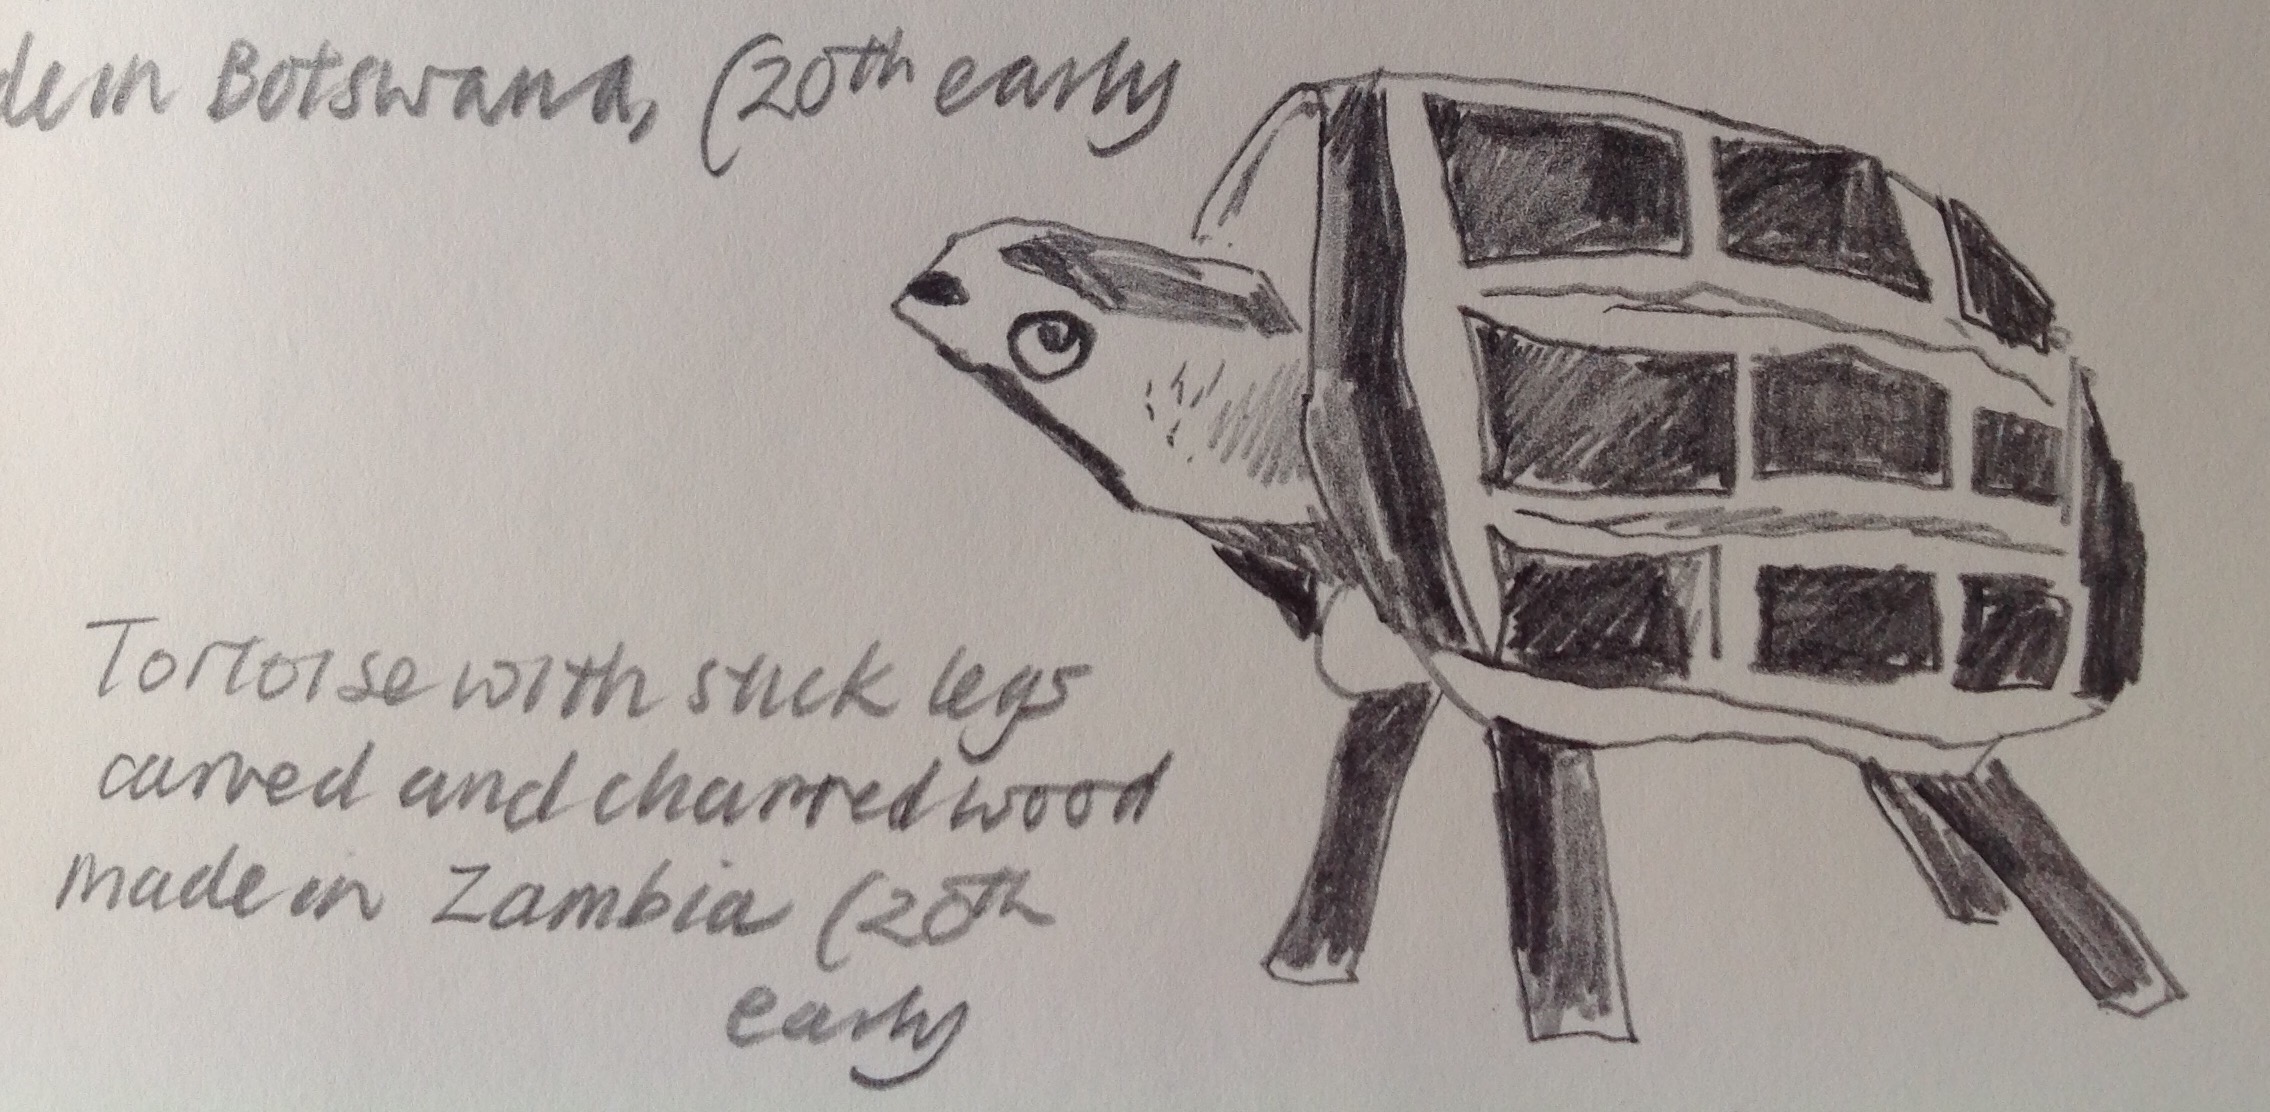 de in Botswana, (20th early
Tortoise with stick legs
carved and charred wood
made in Zambia (20th
early